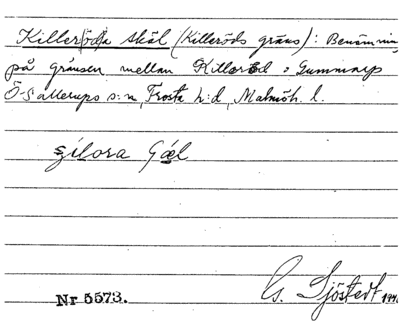 Killeröds skäl (Killeröds gräns): Benämning
på gränsen mellan Killeröd o Gummarp
Ö. Sallerups s:n, Frosta h:d, Malmöh. l.
Nr 5573.
G. Sjöstedt